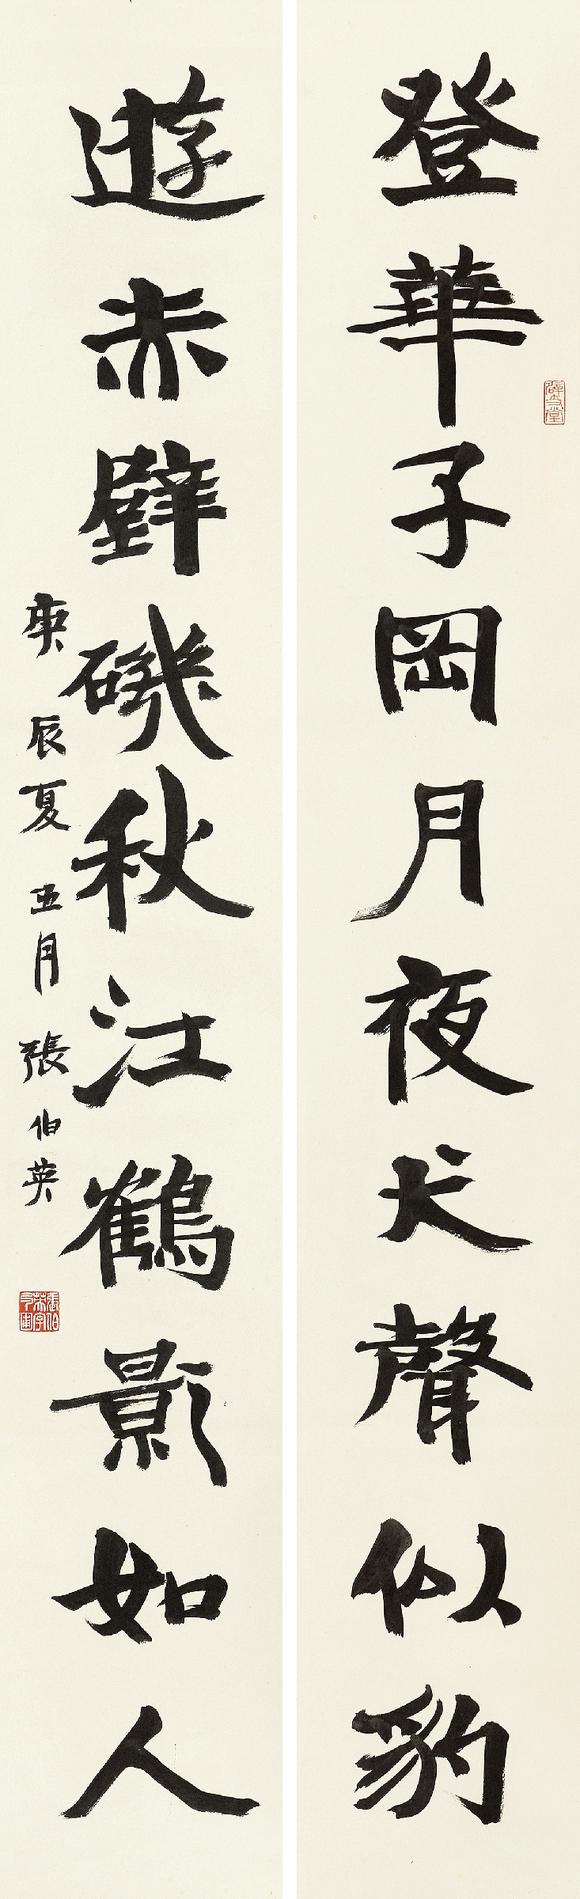 登華子岡月夜犬聲似豹
遊赤壁磯秋江鶴影如人
庚辰夏五月張伯英